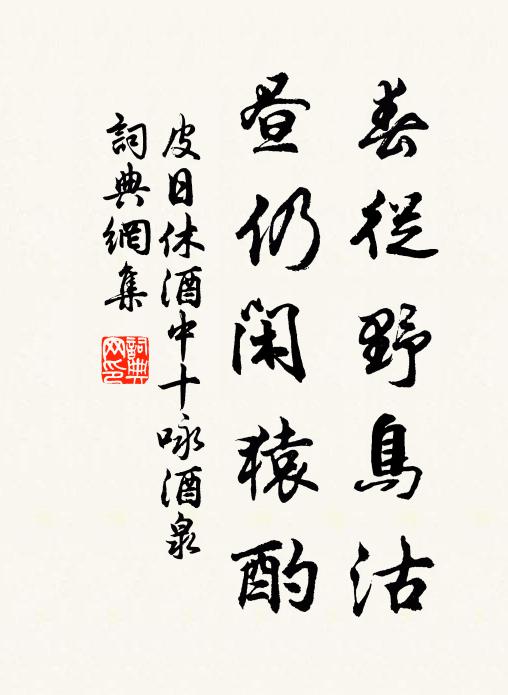 春從野鳥沽
晝仍閑猿酌
皮日休酒中十咏酒泉
詞典網集
詞典網印